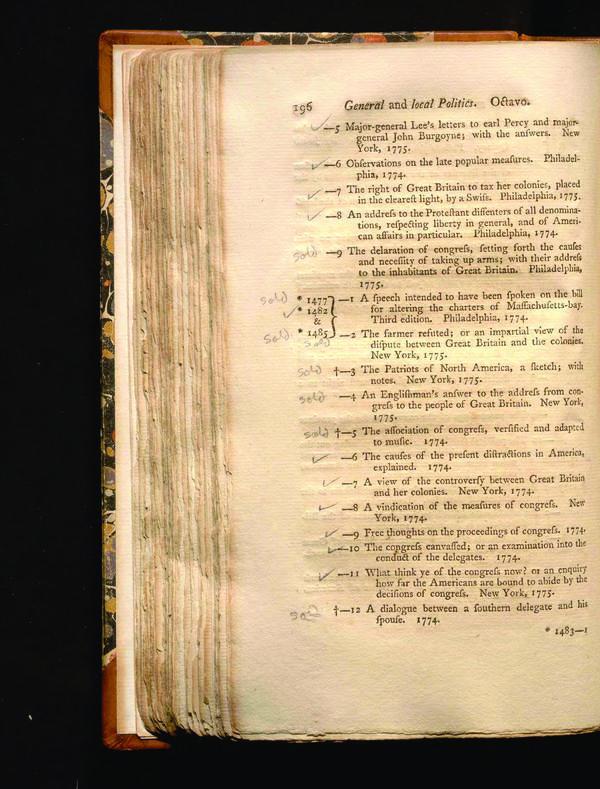 196 General and local Politics. Octavo.
—5 Major-general Lee's letters to earl Percy and major-
general John Burgoyne; with the anſwers. New
York, 1775.
—6 Obſervations on the late popular meaſures. Philadel-
phia, 1774.
—7 The right of Great Britain to tax her colonies, placed
in the cleareſt light, by a Swiſs. Philadelphia, 1775.
—8 An addreſs to the Proteſtant diſſenters of all denomina-
tions, reſpecting liberty in general, and of Ameri-
can affairs in particular. Philadelphia, 1774.
sold —9 The delaration of congreſs, ſetting forth the cauſes
and neceſſity of taking up arms; with their addreſs
to the inhabitants of Great Britain. Philadelphia,
1775.
sold * 1477 —1 A ſpeech intended to have been ſpoken on the bill
* 1482 for altering the charters of Maſſachuſetts-bay.
& Third edition. Philadelphia, 1774.
sold * 1485 sold —2 The farmer refuted; or an impartial view of the
diſpute between Great Britain and the colonies.
New York, 1775.
sold †—3 The Patriots of North America, a ſketch; with
notes. New York, 1775.
sold —4 An Engliſhman's anſwer to the addreſs from con-
greſs to the people of Great Britain. New York,
1775.
sold †—5 The aſſociation of congreſs, verſified and adapted
to muſic. 1774.
—6 The cauſes of the preſent diſtractions in America,
explained. 1774.
—7 A view of the controverſy between Great Britain
and her colonies. New York, 1774.
—8 A vindication of the meaſures of congreſs. New
York, 1774.
—9 Free thoughts on the proceedings of congreſs. 1774.
—10 The congreſs canvaſſed; or an examination into the
conduct of the delegates. 1774.
—11 What think ye of the congreſs now? or an enquiry
how far the Americans are bound to abide by the
deciſions of congreſs. New York, 1775.
sold †—12 A dialogue between a ſouthern delegate and his
ſpouſe. 1774.
* 1483—1